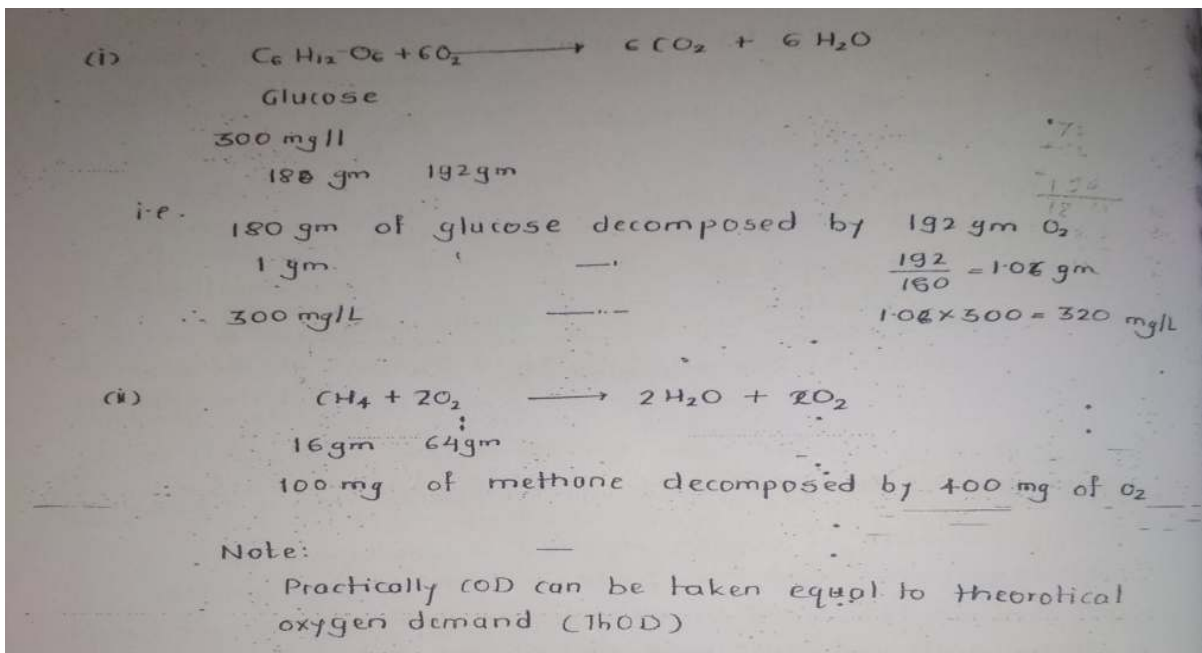 (i) C6 H12 O6 + 6O2 → 6 CO2 + 6 H2O
Glucose
300 mg/l
180 gm 192 gm
i.e.
180 gm of glucose decomposed by 192 gm O2
1 gm. —〃— 192/180 = 1.06 gm
∴ 300 mg/L —〃— 1.06 × 300 = 320 mg/L
(ii) CH4 + 2O2 → 2 H2O + 2O2
16 gm 64 gm
100 mg of methane decomposed by 400 mg of O2
Note:
Practically COD can be taken equal to theorotical
oxygen demand (ThOD)